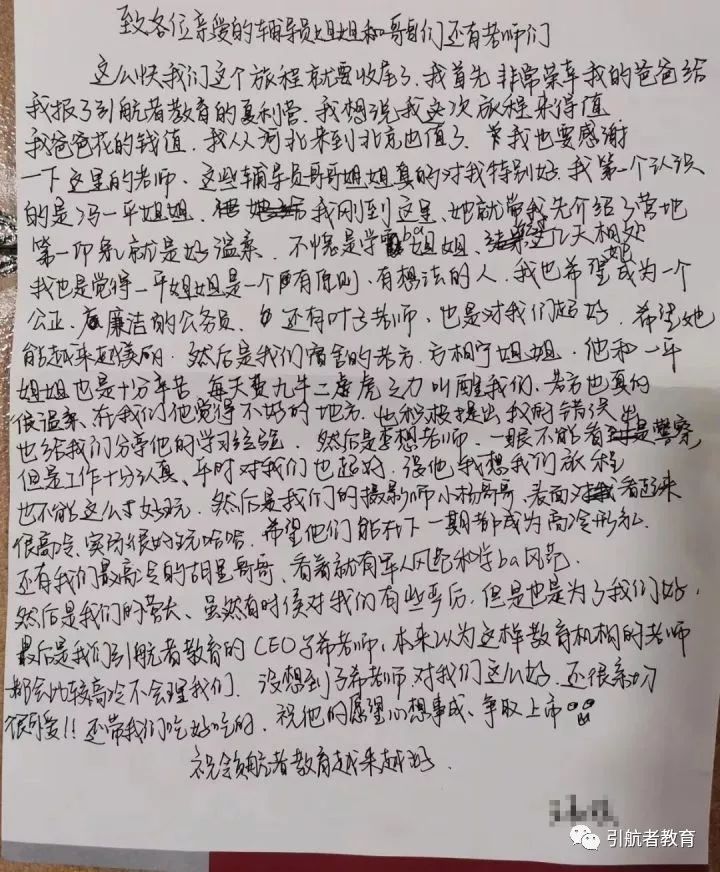 致各位亲爱的辅导员姐姐和哥哥们还有老师们
这么快我们这个旅程就要收尾了,我首先非常荣幸我的爸爸给
我报了引航者教育的夏利营,我想说我这次旅程来得值,
我爸爸花的钱值,我从河北来到北京也值了,我也要感谢
一下这里的老师、这些辅导员哥哥姐姐真的对我特别好,我第一个认识
的是冯一平姐姐,我刚到这里、她就带我先介绍了营地
第一印象就是好温柔,不愧是学霸ba姐姐,几天相处
我也是觉得一平姐姐她是一个有原则、有想法的人,我也希望成为一个
公正、廉洁的公务员,还有叶子老师,也是对我们超好,希望她
能越来越美丽,然后是我们宿舍的老方,方相宁姐姐,他和一平
姐姐也是十分辛苦,每天费九牛二虎之力叫醒我们,老方也真的
很温柔,在我们他觉得不好的地方,他积极提出我的错误,
也给我们分享他的学习经验,然后是李想老师,一眼不能看出是警察,
但是工作十分认真、平时对我们也超好,没他我想我们旅程
也不能这么好玩,然后是我们的摄影师小杨哥哥,表面看起来
很高冷,实际很好玩哈哈,希望他们能在下一期都成为高冷形象.
还有我们最高冷的胡星哥哥、看着就有军人风范和学ba风范.
然后是我们的营长、虽然有时候对我们有些严厉,但是也是为了我们好,
最后是我们引航者教育的CEO子希老师,本来以为这样教育机构的老师
都会比较高冷不会理我们,没想到子希老师对我们这么好,还很亲切
很可爱!!还带我们吃好吃的,祝他的愿望心想事成、争取上市
祝领航者教育越来越好.
引航者教育